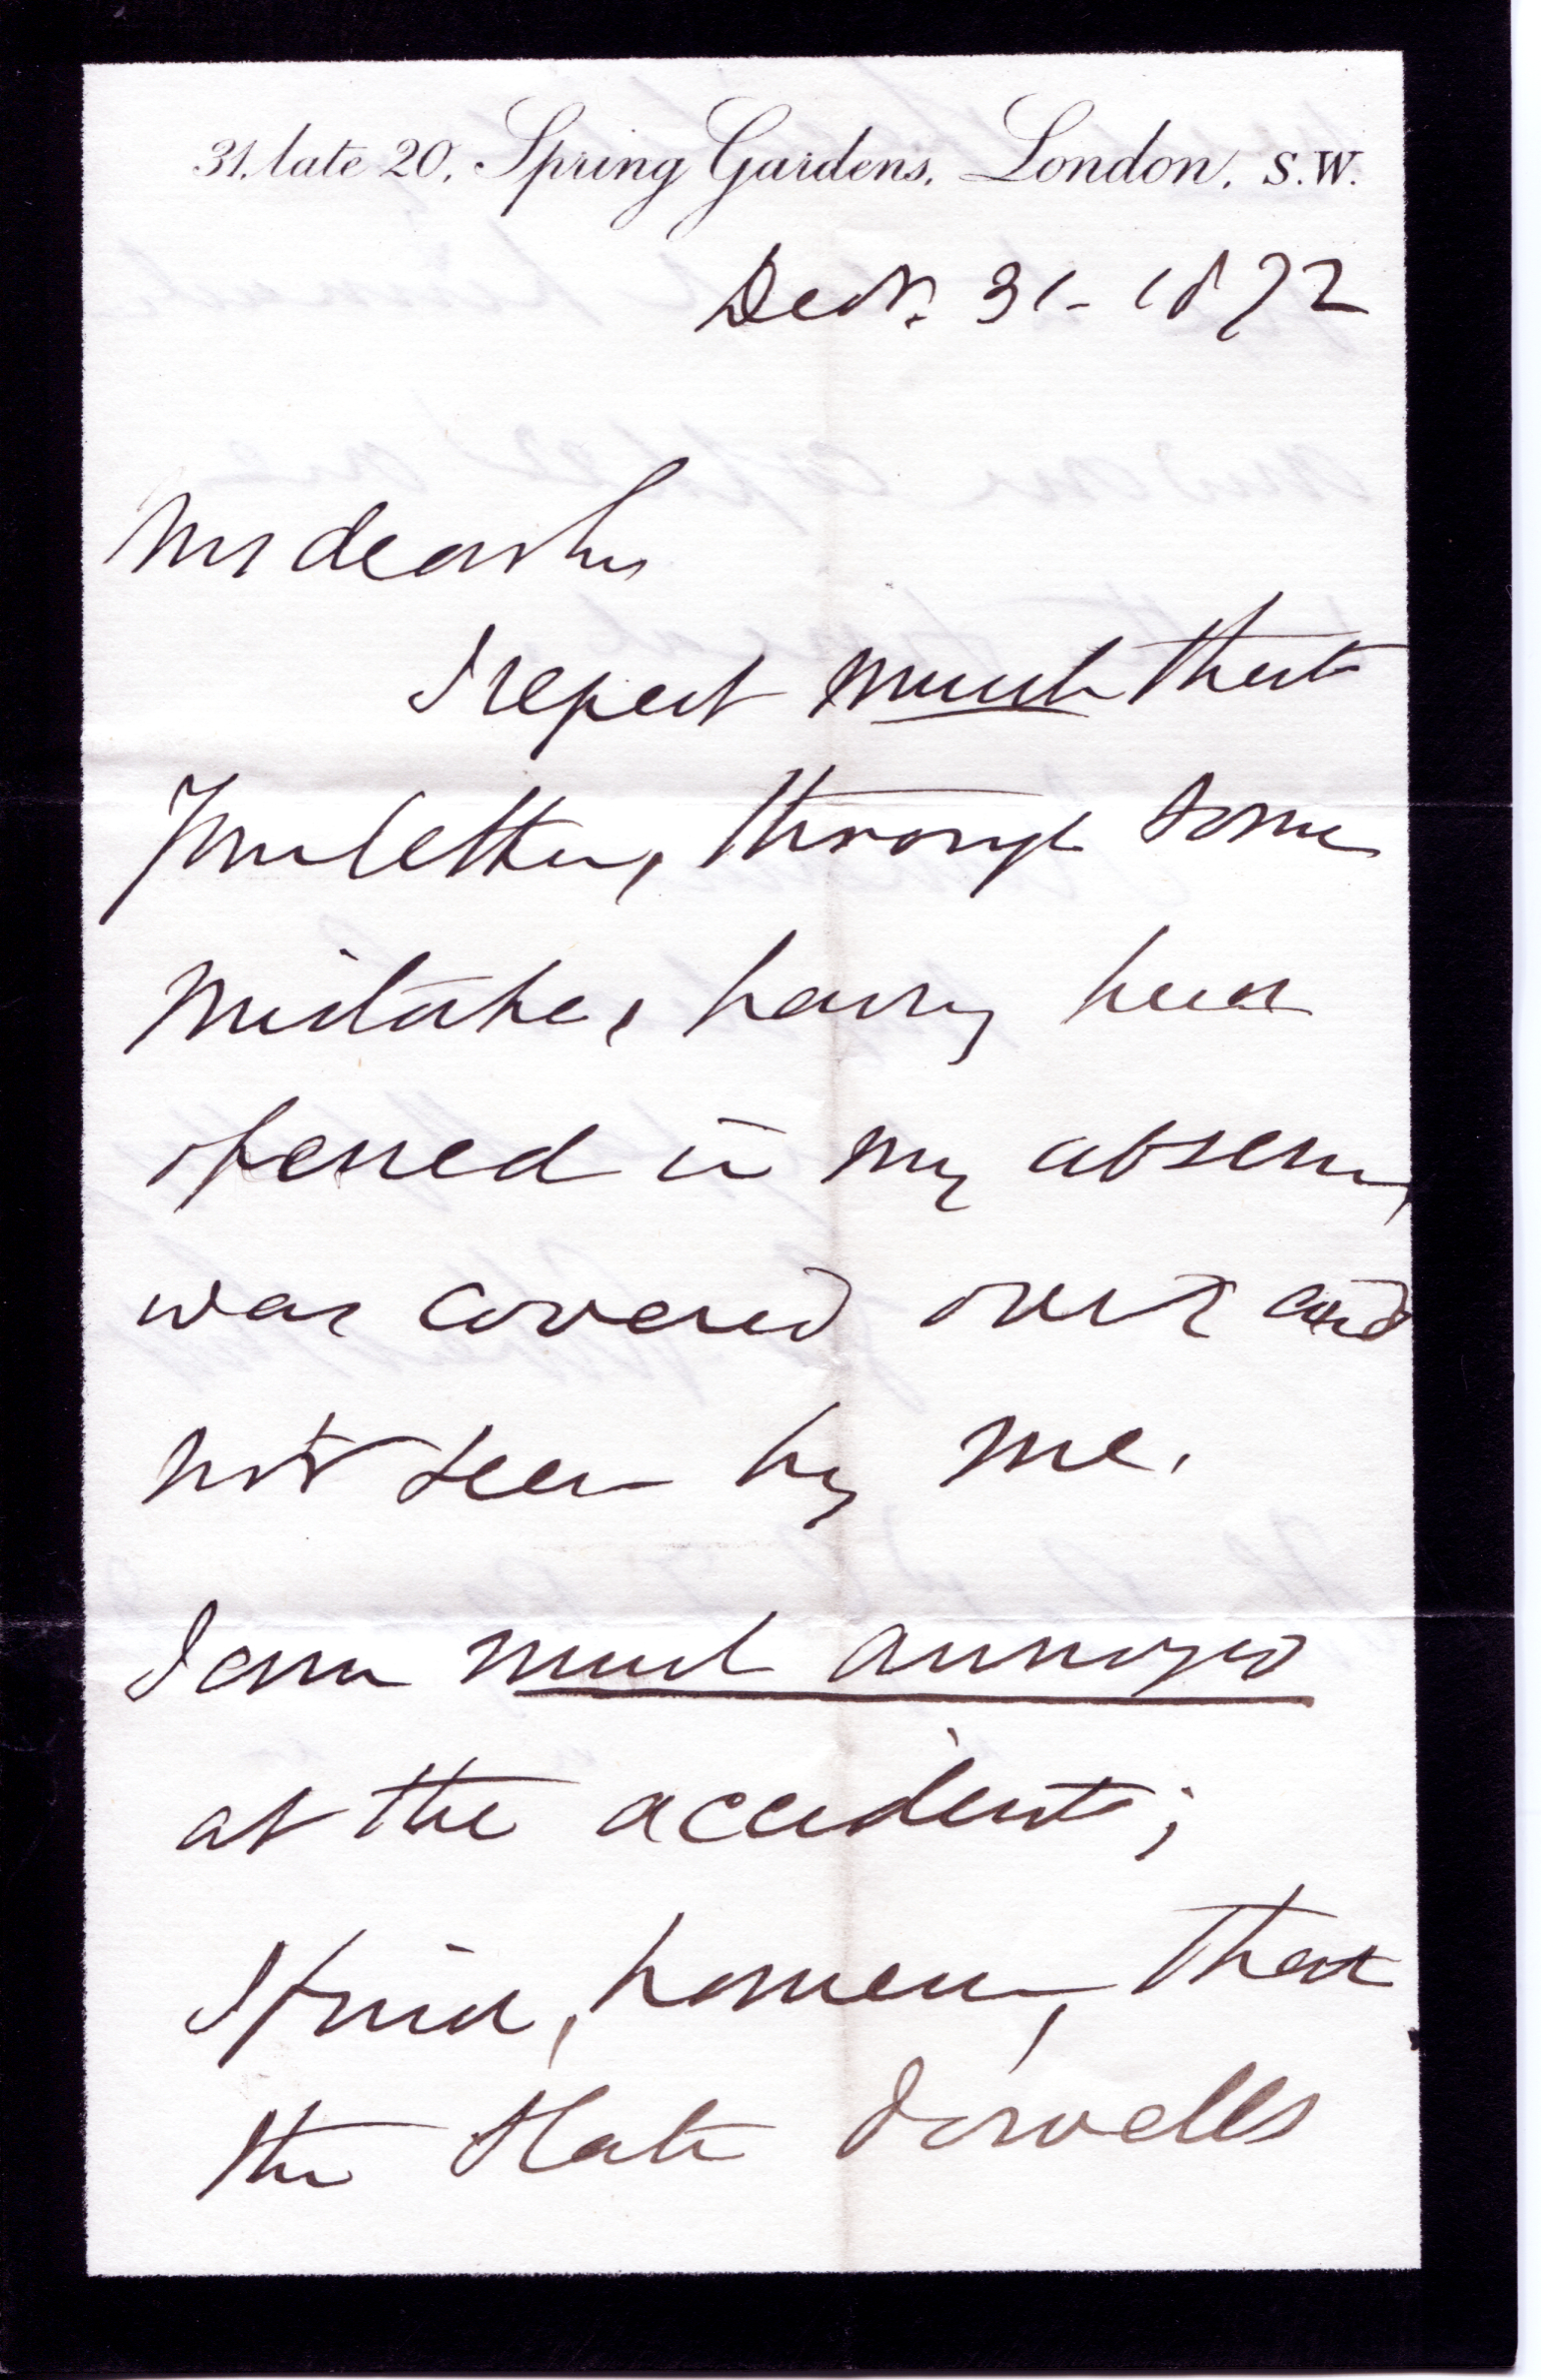 31, late 20, Spring Gardens, London, S.W.
Decr. 31 - 1872
My dear Sir
I regret much that
Your letter, through some
mistake, having been
opened in my absence,
was covered over and
not seen by me.
I am much annoyed
at the accident;
I find, however, that
the slate dowells